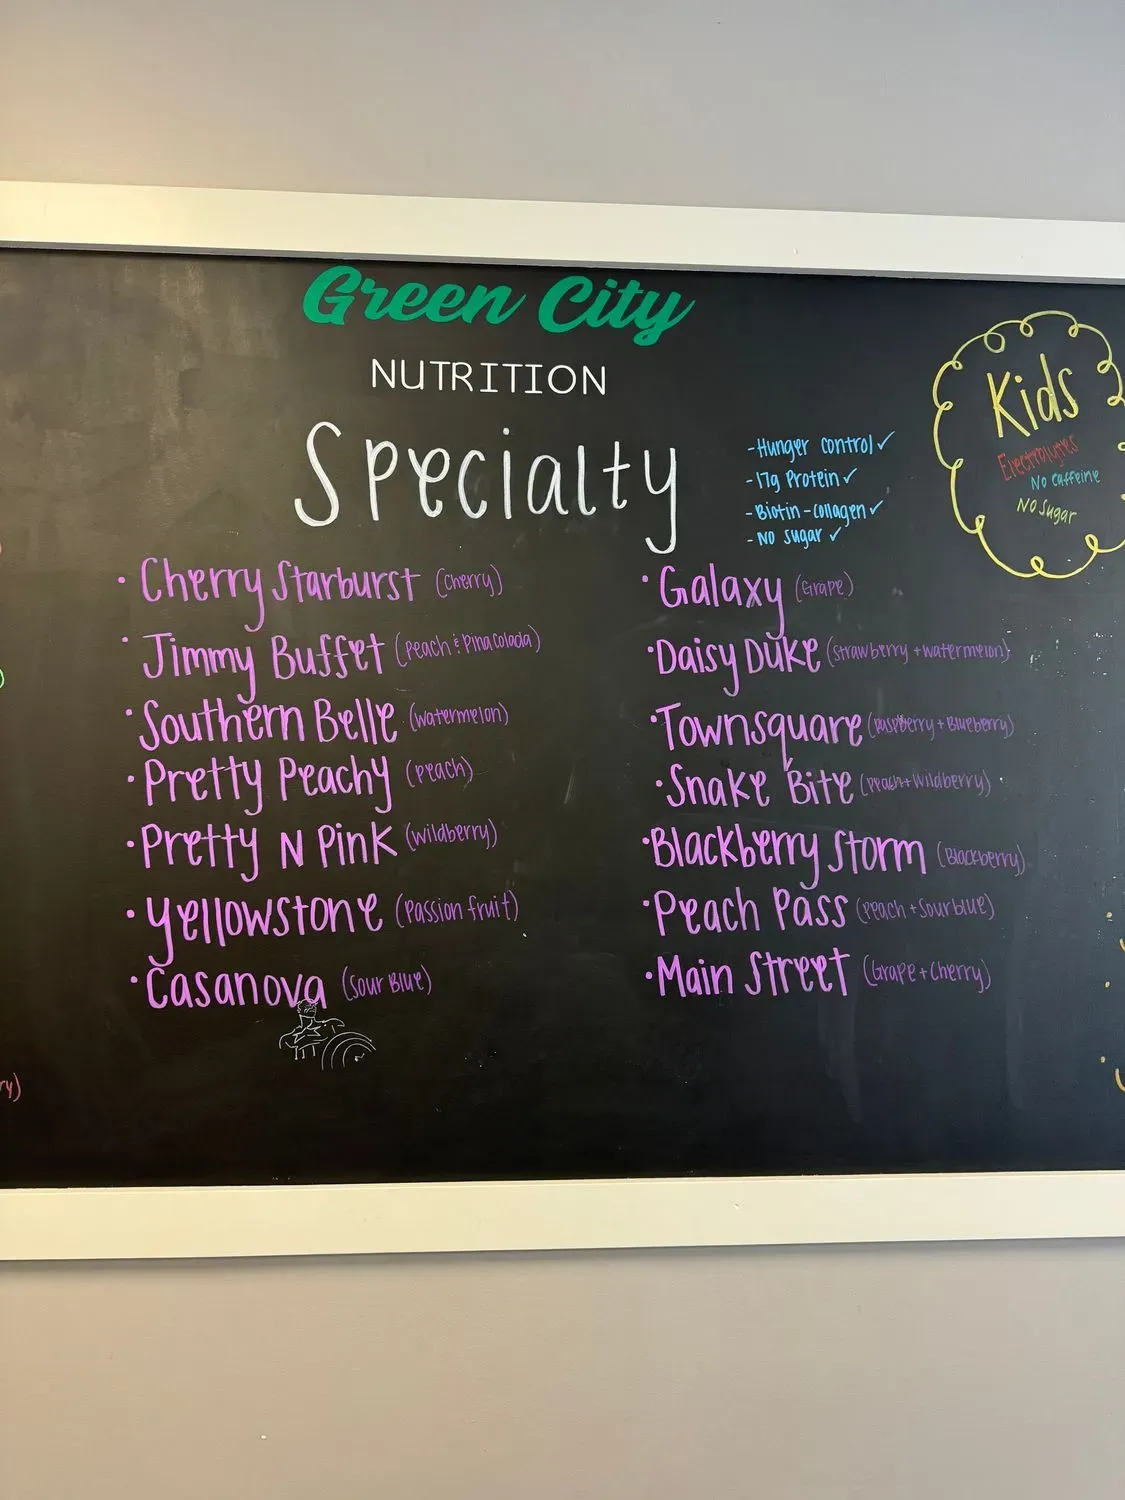 Green City
NUTRITION
Specialty
-Hunger control ✓
-17g Protein ✓
-Biotin-collagen ✓
-No sugar ✓
Kids
Electrolytes
No Caffeine
No Sugar
• Cherry Starburst (Cherry)
• Jimmy Buffet (Peach & Pina Colada)
• Southern Belle (Watermelon)
• Pretty Peachy (Peach)
• Pretty N Pink (Wildberry)
• Yellowstone (Passion fruit)
• Casanova (Sour Blue)
• Galaxy (Grape)
• Daisy Duke (Strawberry + Watermelon)
• Townsquare (Raspberry + Blueberry)
• Snake Bite (Peach + Wildberry)
• Blackberry Storm (Blackberry)
• Peach Pass (Peach + Sour blue)
• Main Street (Grape + Cherry)
ry)